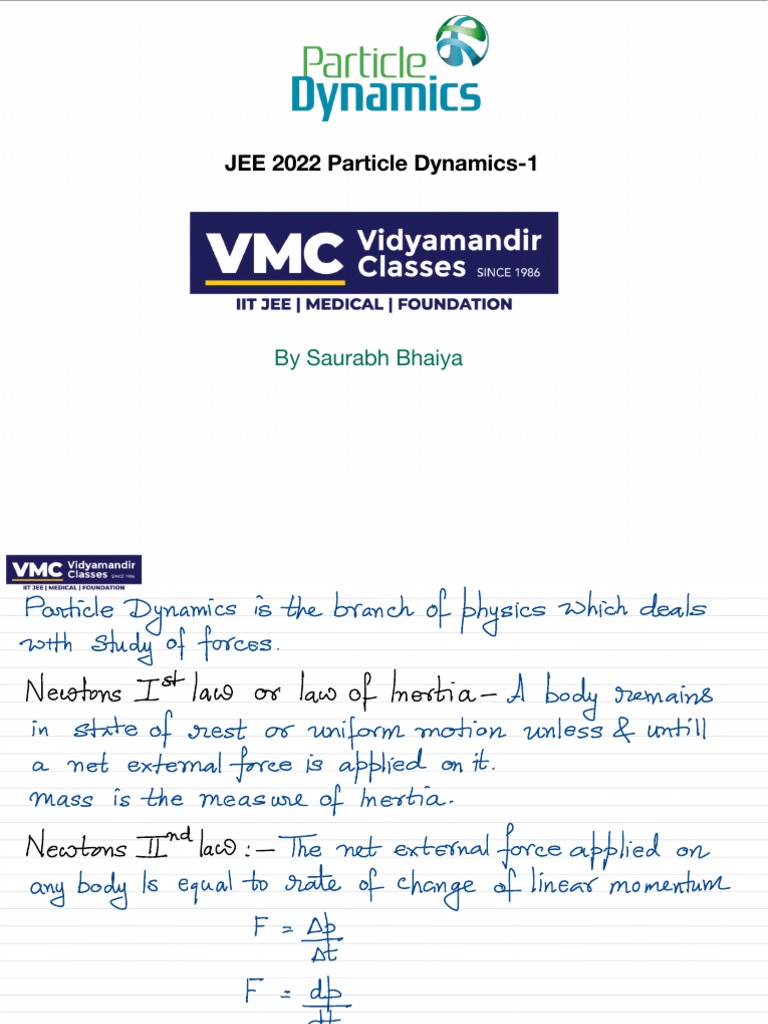 Particle
Dynamics
JEE 2022 Particle Dynamics-1
VMC Vidyamandir
Classes SINCE 1986
IIT JEE | MEDICAL | FOUNDATION
By Saurabh Bhaiya
VMC Vidyamandir
Classes SINCE 1986
IIT JEE | MEDICAL | FOUNDATION
Particle Dynamics is the branch of physics which deals
with study of forces.
Newtons Ist law or law of Inertia – A body remains
in state of rest or uniform motion unless & untill
a net external force is applied on it.
mass is the measure of Inertia.
Newtons IInd law :– The net external force applied on
any body Is equal to rate of change of linear momentum
F = Δp/Δt
F = dp/dt